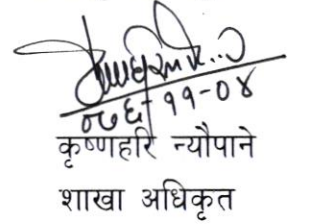 ०७६-११-०४
कृष्णहरि न्यौपाने
शाखा अधिकृत